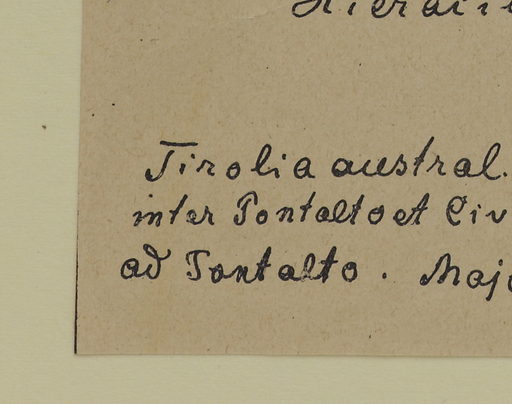 Hieraci
Tirolia austral.
inter Pontalto et Civ
ad Pontalto. Majo